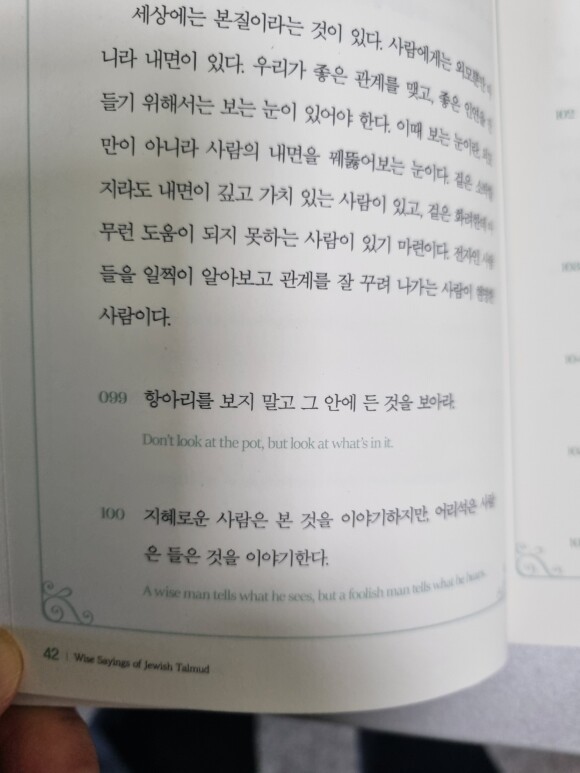 세상에는 본질이라는 것이 있다. 사람에게는 외모뿐만 아
니라 내면이 있다. 우리가 좋은 관계를 맺고, 좋은 인연을 만
들기 위해서는 보는 눈이 있어야 한다. 이때 보는 눈이란
만이 아니라 사람의 내면을 꿰뚫어보는 눈이다. 겉은
지라도 내면이 깊고 가치 있는 사람이 있고, 겉은 화려한데 아
무런 도움이 되지 못하는 사람이 있기 마련이다. 전자인 사람
들을 일찍이 알아보고 관계를 잘 꾸려 나가는 사람이 현명한
사람이다.
099 항아리를 보지 말고 그 안에 든 것을 보아라.
Don't look at the pot, but look at what's in it.
100 지혜로운 사람은 본 것을 이야기하지만, 어리석은 사람
은 들은 것을 이야기한다.
A wise man tells what he sees, but a foolish man tells what he hears.
42 | Wise Sayings of Jewish Talmud